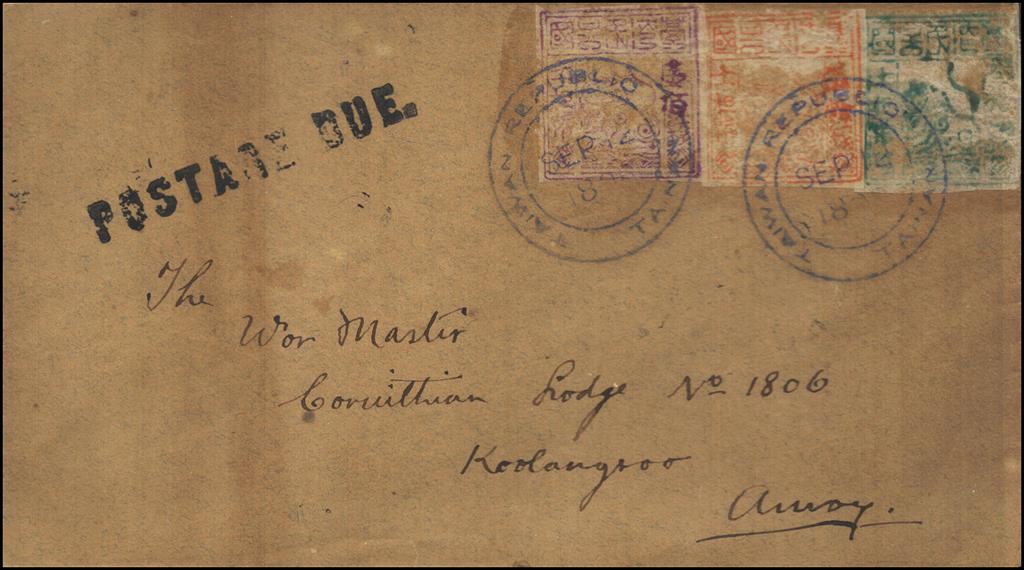 POSTAGE DUE.
TAIWAN REPUBLIC TAINAN
SEP 12
18
TAIWAN REPUBLIC TAINAN
SEP
18
The
Wor Master
Corinthian Lodge No 1806
Koolangsoo
Amoy.